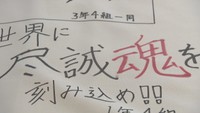 3年4組一同
世界に
尽誠魂を
刻み込め!!
1年4組